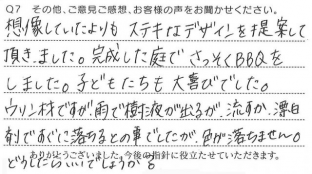 Q7 その他、ご意見ご感想、お客様の声をお聞かせください。
想像していたよりも ステキなデザインを提案して
頂きました。完成した庭でさっそくBBQを
しました。子どもたちも大喜びでした。
ウリン材ですが雨で樹液が出るが、流すか、漂白
剤ですぐに落ちるとの事でしたが、色が落ちません。
どうしたらいいでしょうか?
ありがとうございました。今後の指針に役立たせていただきます。